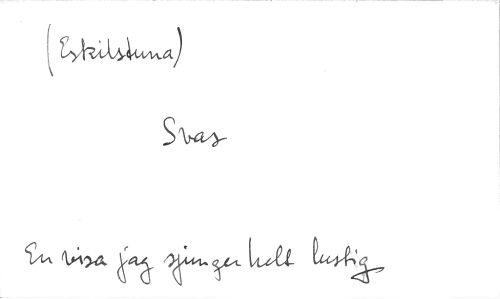 (Eskilstuna)
Svar
En visa jag sjunger helt lustig